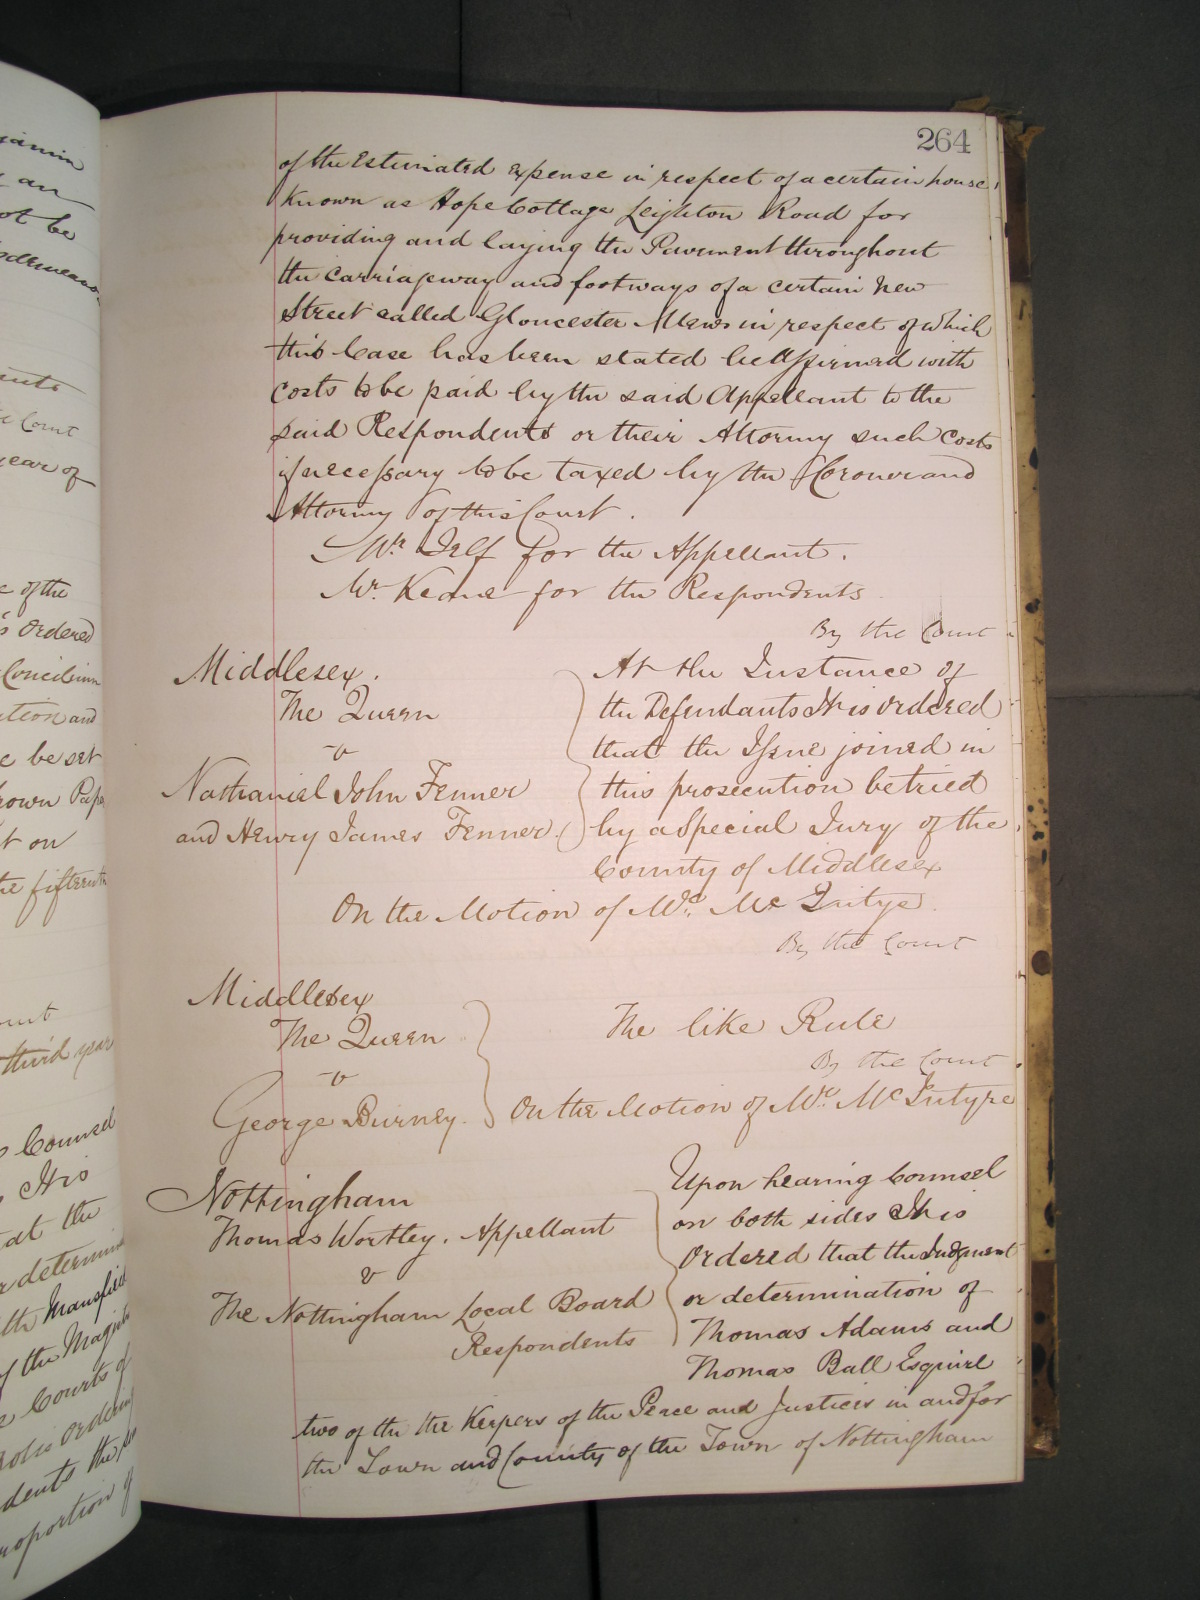 jamin
an
ot be
isdemeano
ents
e Court
year of
e of the
is Ordered
Concilium
ation and
e be set
rown Pape
t on
he fifteenth
ourt
third year
Counsel
It is
at the
r determin
ith Mansfield
of the Magist
e Courts of
dents the
roportion of
264
of the Estimated expense in respect of a certain house
known as Hope Cottage Leighton Road for
providing and laying the Pavement throughout
the carriageway and footways of a certain New
Street called Gloucester Mews in respect of which
this Case has been stated be Affirmed with
costs to be paid by the said Appellant to the
said Respondents or their Attorney such costs
if necessary to be taxed by the Coroner and
Attorney of this Court.
Mr. Jelf for the Appellant.
Mr. Keane for the Respondents
By the Court
Middlesex.
The Queen
v
Nathaniel John Fenner
and Henry James Fenner.
At the Instance of
the Defendants It is ordered
that the Issue joined in
this prosecution be tried
by a Special Jury of the
County of Middlesex
On the Motion of Mr. Mc Intyre.
By the Court
Middlesex
The Queen
v
George Burney.
The like Rule
By the Court
On the Motion of Mr. McIntyre
Nottingham
Thomas Wortley. Appellant
v
The Nottingham Local Board
Respondents
Upon hearing Counsel
on both sides It is
Ordered that the Judgment
or determination of
Thomas Adams and
Thomas Ball Esquire
two of the the Keepers of the Peace and Justices in and for
the Town and County of the Town of Nottingham